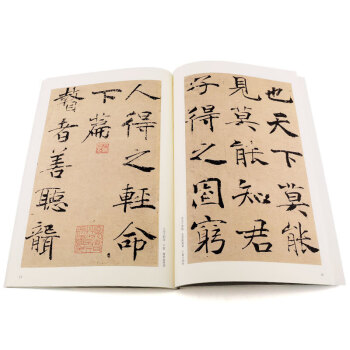 也天下莫能
見莫能知君
子得之固窮
人得之輕命
下篇
瞽者善聽聾